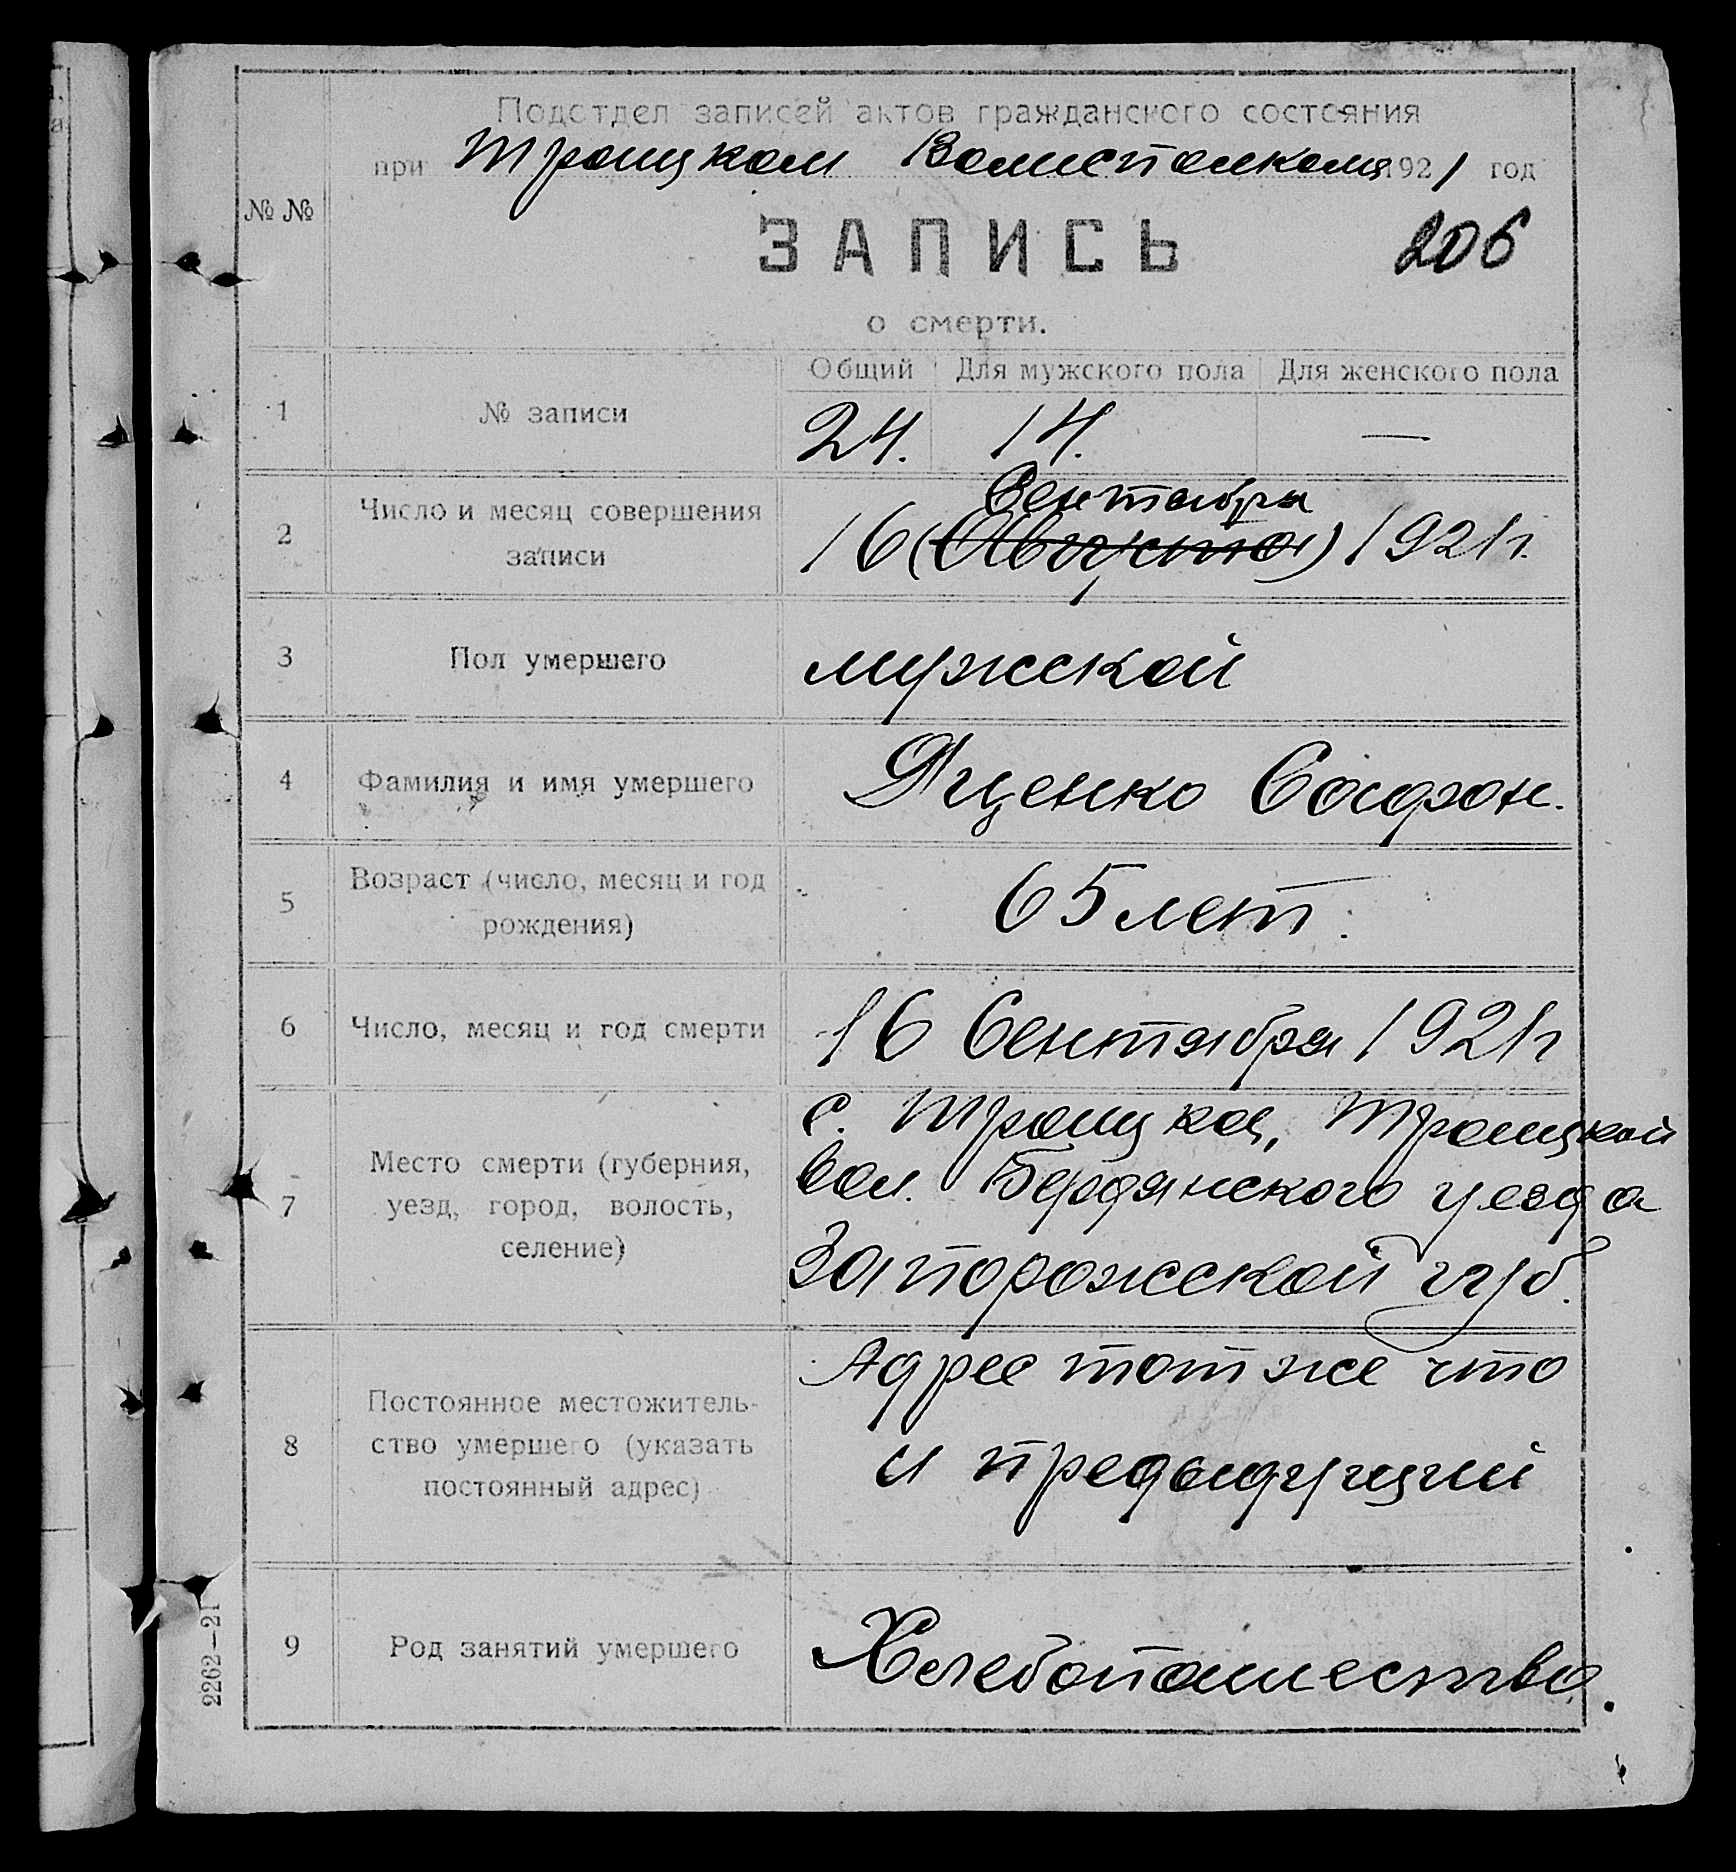 Подотдел записей актов гражданского состояния
при Троицком Волисполкоме 1921 год
№ №
ЗАПИСЬ
206
о смерти.
Общий Для мужского пола Для женского пола
1 № записи 24. 14. —
Сентября
2 Число и месяц совершения записи 16 (Августа) 1921 г.
3 Пол умершего мужской
4 Фамилия и имя умершего Яценко Софрон.
5 Возраст (число, месяц и год рождения) 65 лет.
6 Число, месяц и год смерти 16 Сентября 1921 г
7 Место смерти (губерния, уезд, город, волость, селение)
с. Троицкое, Троицкой
вол. Бердянского уезда
Запорожской губ.
8 Постоянное местожитель-
ство умершего (указать
постоянный адрес)
Адрес тот же что
и предыдущий
9 Род занятий умершего Хлебопашество.
2262—21